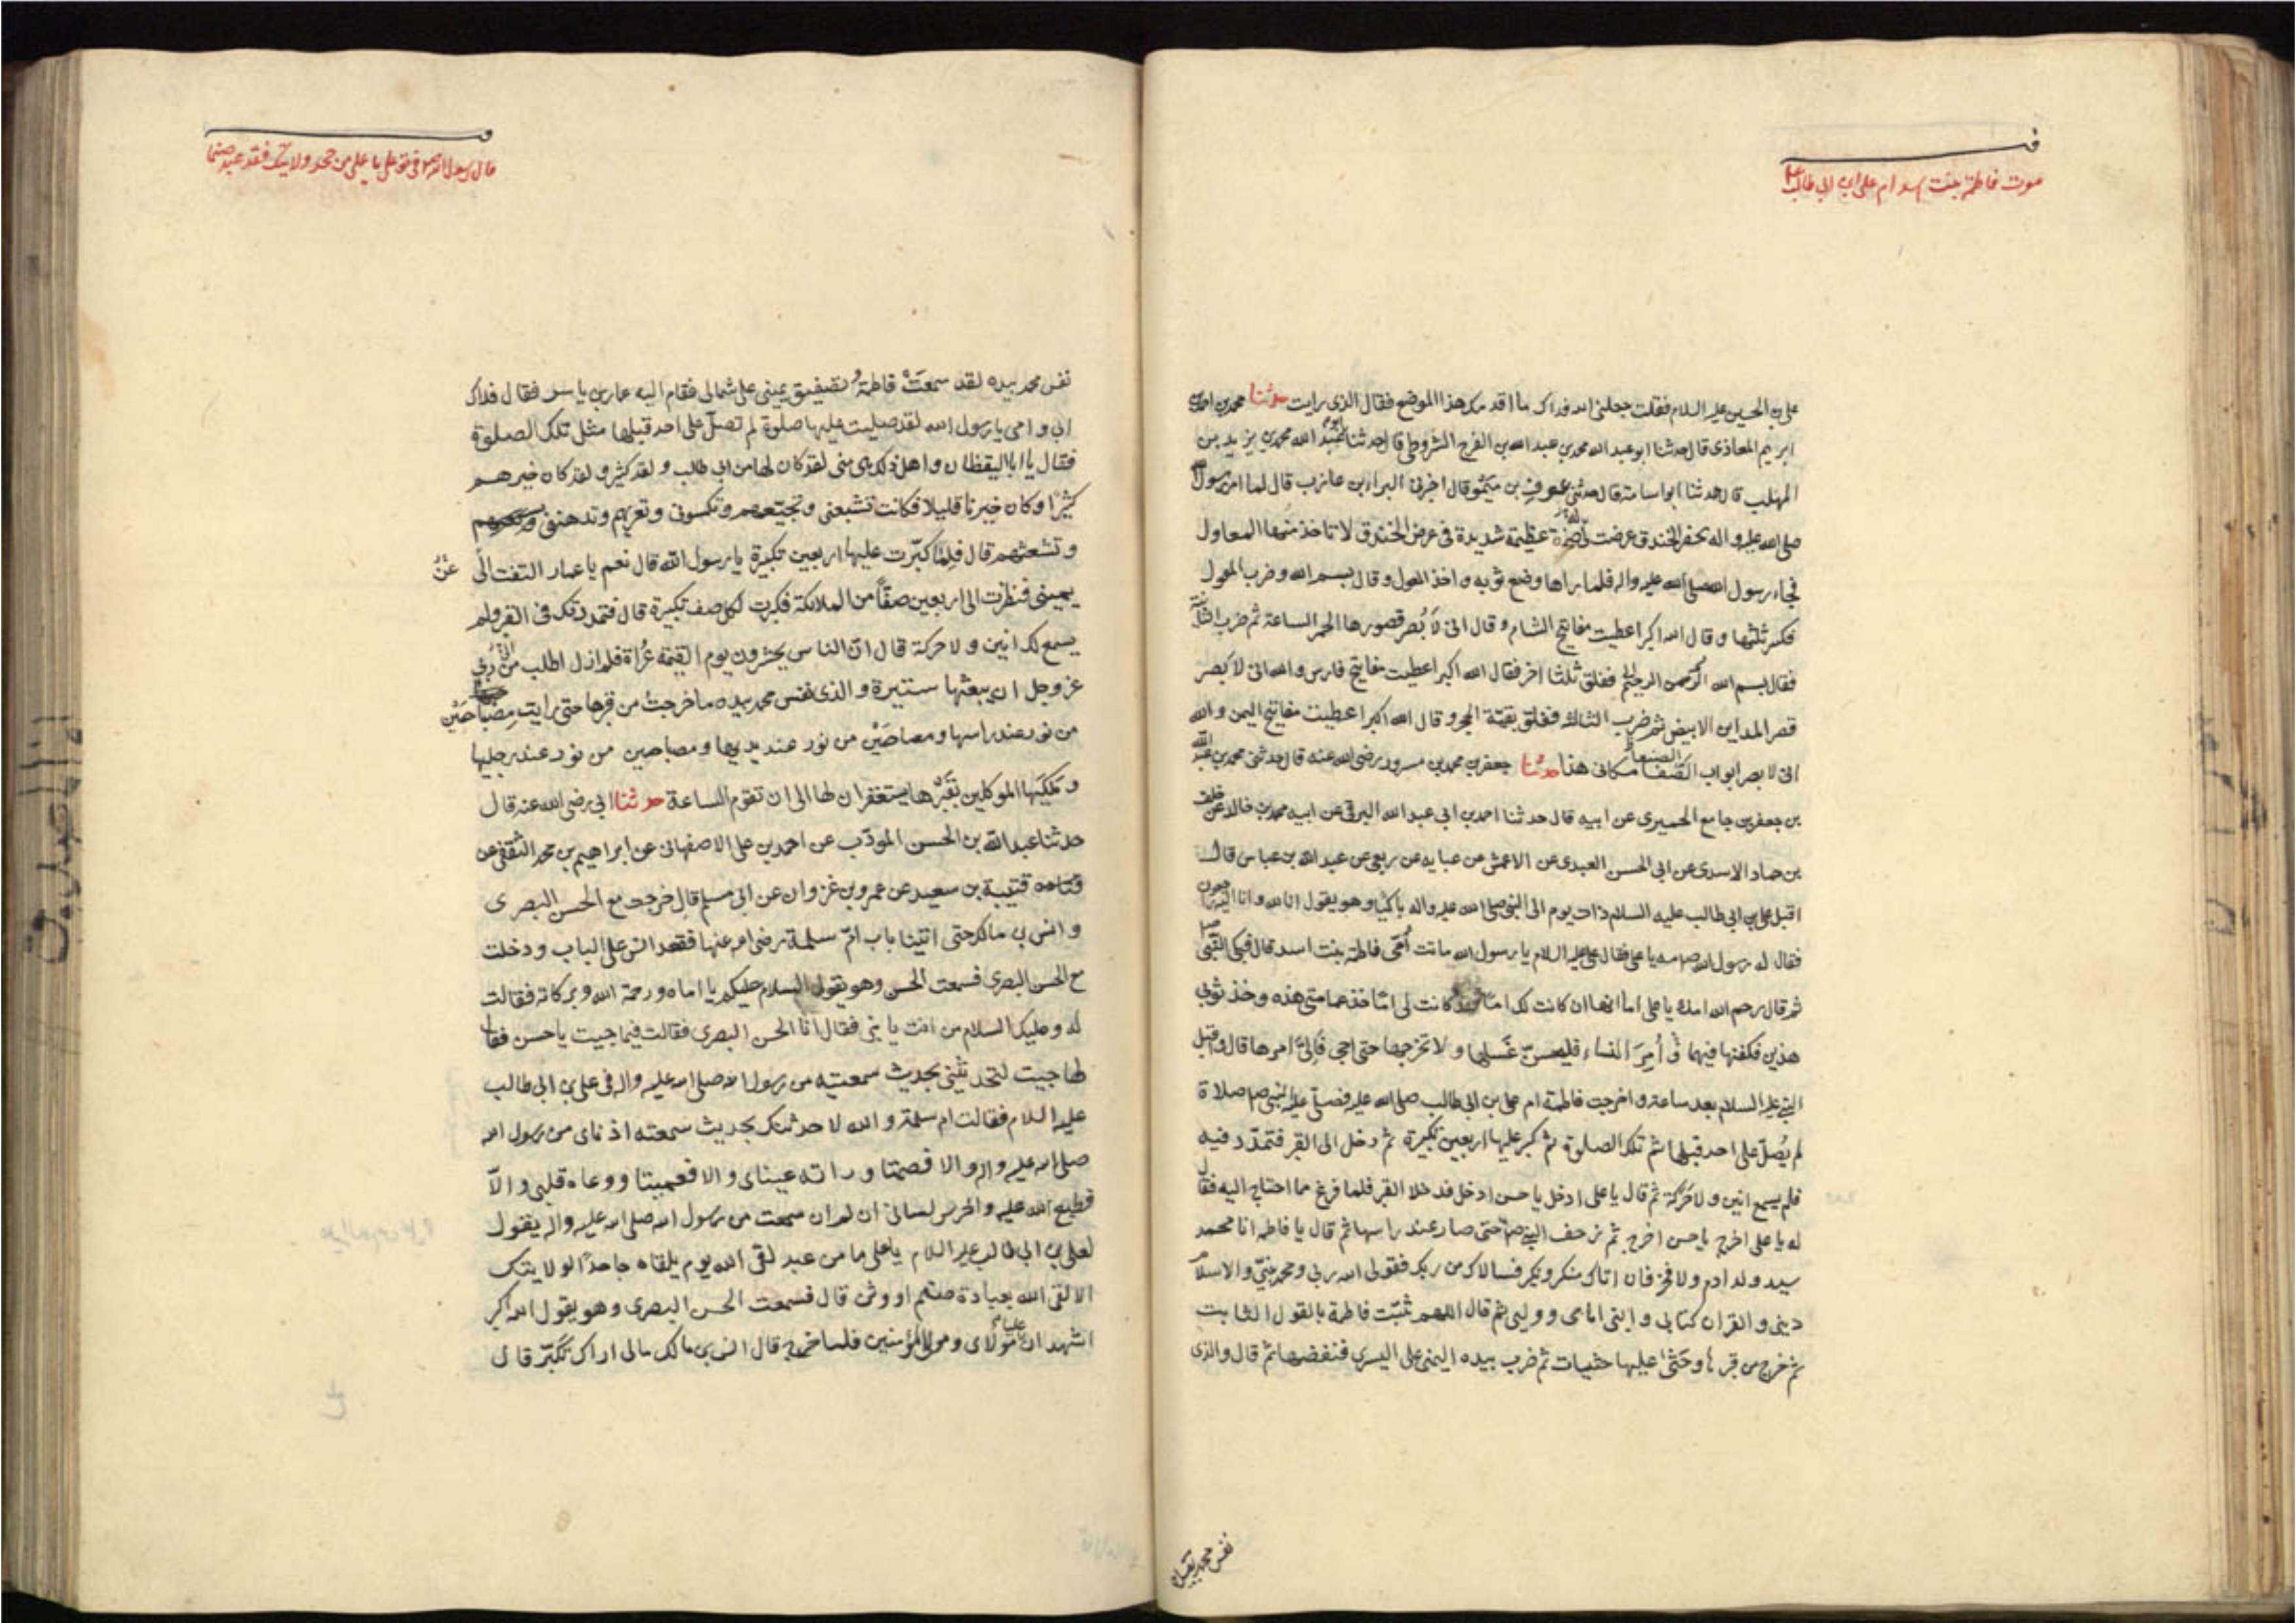 موت فاطمة بنت اسد ام علی ابن ابی طالب
علی بن الحسین علیه السلام فقلت جعلنی الله فداک ما اقدمک هذا الموضع فقال الذی رایت حدثنا محمد بن احمد بن
ابرهیم المعاذی قال حدثنا ابو عبد الله محمد بن عبد الله بن الفرج الشروطی قال حدثنا ابو عبد الله محمد بن یزید بن
المهلب قال حدثنا ابو اسامة قال حدثنی عوف بن میمون قال اخبرنی البراء بن عازب قال لما امر رسول الله
صلی الله علیه واله بحفر الخندق عرضت له صخرة عظیمة شدیدة فی عرض الخندق لا تاخذ منها المعاول
فجاء رسول الله صلی الله علیه واله فلما راها وضع ثوبه واخذ المعول وقال بسم الله وضرب المعول
فکسر ثلثها وقال الله اکبر اعطیت مفاتیح الشام وقال انی لا بصر قصورها الحمر الساعة ثم ضرب الثانیة
فقال بسم الله الرحمن الرحیم ففلق ثلثا اخر فقال الله اکبر اعطیت مفاتیح فارس والله انی لا بصر
قصر المداین الابیض ثم ضرب الثالثة ففلق بقیة الحجر وقال الله اکبر اعطیت مفاتیح الیمن والله
انی لا بصر ابواب الصنعا مکانی هذا حدثنا جعفر بن محمد بن مسرور رضی الله عنه قال حدثنی محمد بن عبد الله
بن جعفر بن جامع الحمیری عن ابیه قال حدثنا احمد بن ابی عبد الله البرقی عن ابیه محمد بن خالد عن خلف
بن حماد الاسدی عن ابی الحسن العبدی عن الاعمش عن عبایه عن ربعی عن عبد الله بن عباس قال
اقبل علی بن ابی طالب علیه السلام ذات یوم الی النبی صلی الله علیه واله باکیا وهو یقول انا لله وانا الیه راجعون
فقال له رسول الله صلی الله علیه مه یا علی فقال علی علیه السلام یا رسول الله ماتت امی فاطمة بنت اسد قال فبکی النبی صلی
ثم قال رحم الله امک یا علی اما انها ان کانت لک اما فقد کانت لی اما خذ عمامتی هذه وخذ ثوبی
هذین فکفنها فیهما و أمر النساء فلیحسن غسلها ولا تخرجها حتی اجی فالی امرها قال واقبل
النبی علیه السلام بعد ساعة واخرجت فاطمة ام علی بن ابی طالب صلی الله علیه فصلی علیها النبی ص صلاة
لم یصل علی احد قبلها مثل تلک الصلوة ثم کبر علیها اربعین تکبیرة ثم دخل الی القبر فتمدد فیه
فلم یسمع انین ولا حرکة ثم قال یا علی ادخل یا حسن ادخل فدخلا القبر فلما فرغ مما احتاج الیه فقال
له یا علی اخرج یا حسن اخرج ثم زحف النبی ص حتی صار عند راسها ثم قال یا فاطمة انا محمد
سید ولد ادم ولا فخر فان اتاک منکر ونکیر فسالاک من ربک فقولی الله ربی ومحمد نبیی والاسلام
دینی والقران کتابی وابنی امامی وولیی ثم قال اللهم ثبت فاطمة بالقول الثابت
ثم خرج من قبرها وحثی علیها حثیات ثم ضرب بیده الیمنی علی الیسری فنفضهما ثم قال والذی
نفس محمد بیده
قال رسول الله ص فی حق علی یا علی من جحد ولایتک فقد عبد صنما
نفس محمد بیده لقد سمعت فاطمة تصفیق یمینی علی شمالی فقام الیه عمار بن یاسر فقال فداک
ابی وامی یا رسول الله لقد صلیت علیها صلوة لم تصل علی احد قبلها مثل تلک الصلوة
فقال یا ابا الیقظان واهل ذلک هی منی لقد کان لها من ابی طالب ولد کثیر ولقد کان خیرهم
کثیرا وکان خیرنا قلیلا فکانت تشبعنی وتجیعهم وتکسونی وتعریهم وتدهننی
وتشعثهم قال فلما کبرت علیها اربعین تکبیرة یا رسول الله قال نعم یا عمار التفت الی عن
یمینی فنظرت الی اربعین صفا من الملائکة فکبرت لکل صف تکبیرة قال فتمددک فی القبر ولم
یسمع لک انین ولا حرکة قال ان الناس یحشرون یوم القیمة عراة فلم ازل اطلب من ربی
عز وجل ان یبعثها ستیرة والذی نفس محمد بیده ما خرجت من قبرها حتی رایت مصباحین
من نور عند راسها ومصباحین من نور عند یدیها ومصباحین من نور عند رجلیها
وملکیها الموکلین بقبرها یستغفران لها الی ان تقوم الساعة حدثنا ابی رضی الله عنه قال
حدثنا عبد الله بن الحسن المودب عن احمد بن علی الاصفهانی عن ابراهیم بن محمد الثقفی عن
قتیبة بن سعید عن عمرو بن غزوان عن ابی مسلم قال خرجت مع الحسن البصری
وانس بن مالک حتی اتینا باب ام سلمة رضی الله عنها فقعد انس علی الباب ودخلت
مع الحسن البصری فسمعت الحسن وهو یقول السلام علیکم یا اماه ورحمة الله وبرکاته فقالت
له وعلیک السلام من انت یا بنی فقال انا الحسن البصری فقالت فیما جیت یا حسن فقال
لها جیت لتحدثینی بحدیث سمعتیه من رسول الله صلی الله علیه واله فی علی بن ابی طالب
علیه السلام فقالت ام سلمة والله لاحدثنک بحدیث سمعته اذنای من رسول الله
صلی الله علیه واله والا فصمتا وراته عینای والا فعمیتا ووعاه قلبی والا
فطبع الله علیه واخرس لسانی ان لم اکن سمعت من رسول الله صلی الله علیه واله یقول
لعلی بن ابی طالب علیه السلام یا علی ما من عبد لقی الله یوم یلقاه جاحدا لولایتک
الا لقی الله بعبادة صنم او وثن قال فسمعت الحسن البصری وهو یقول الله اکبر
اشهد ان علیا مولای ومولی المؤمنین فلما خرج قال انس بن مالک مالی اراک تکبر قال